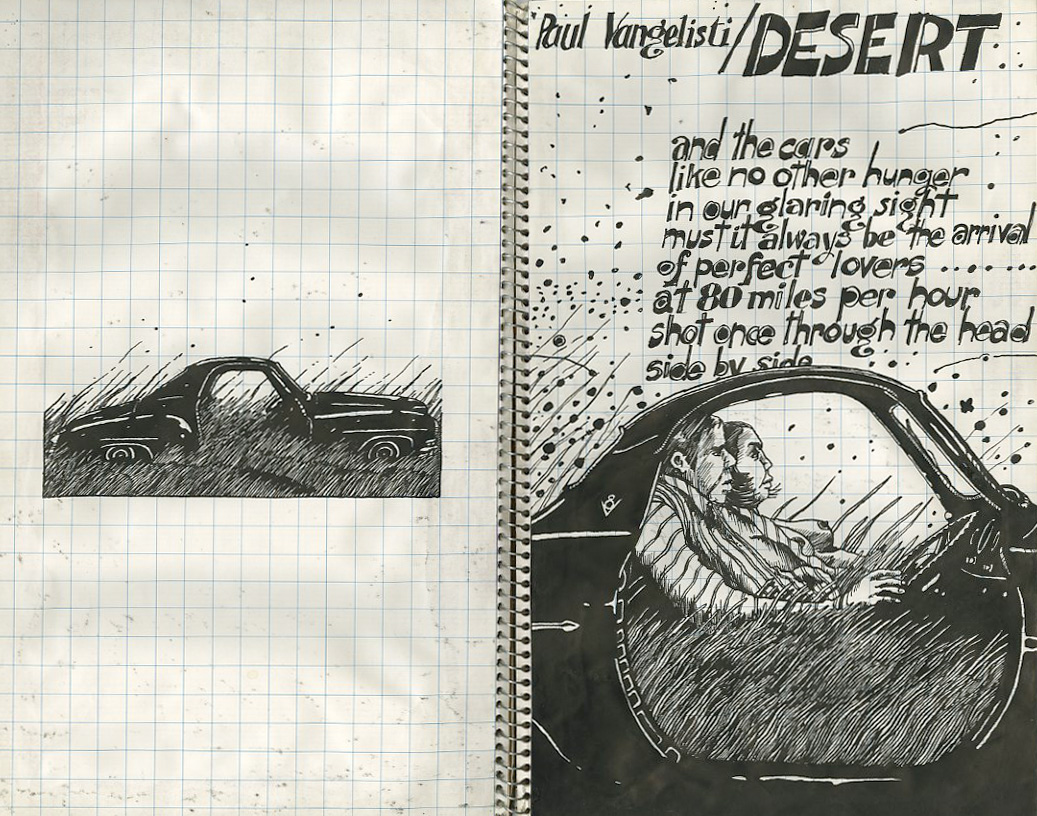 Paul Vangelisti/DESERT
and the cars
like no other hunger
in our glaring sight
must it always be the arrival
of perfect lovers ........
at 80 miles per hour
shot once through the head
side by side